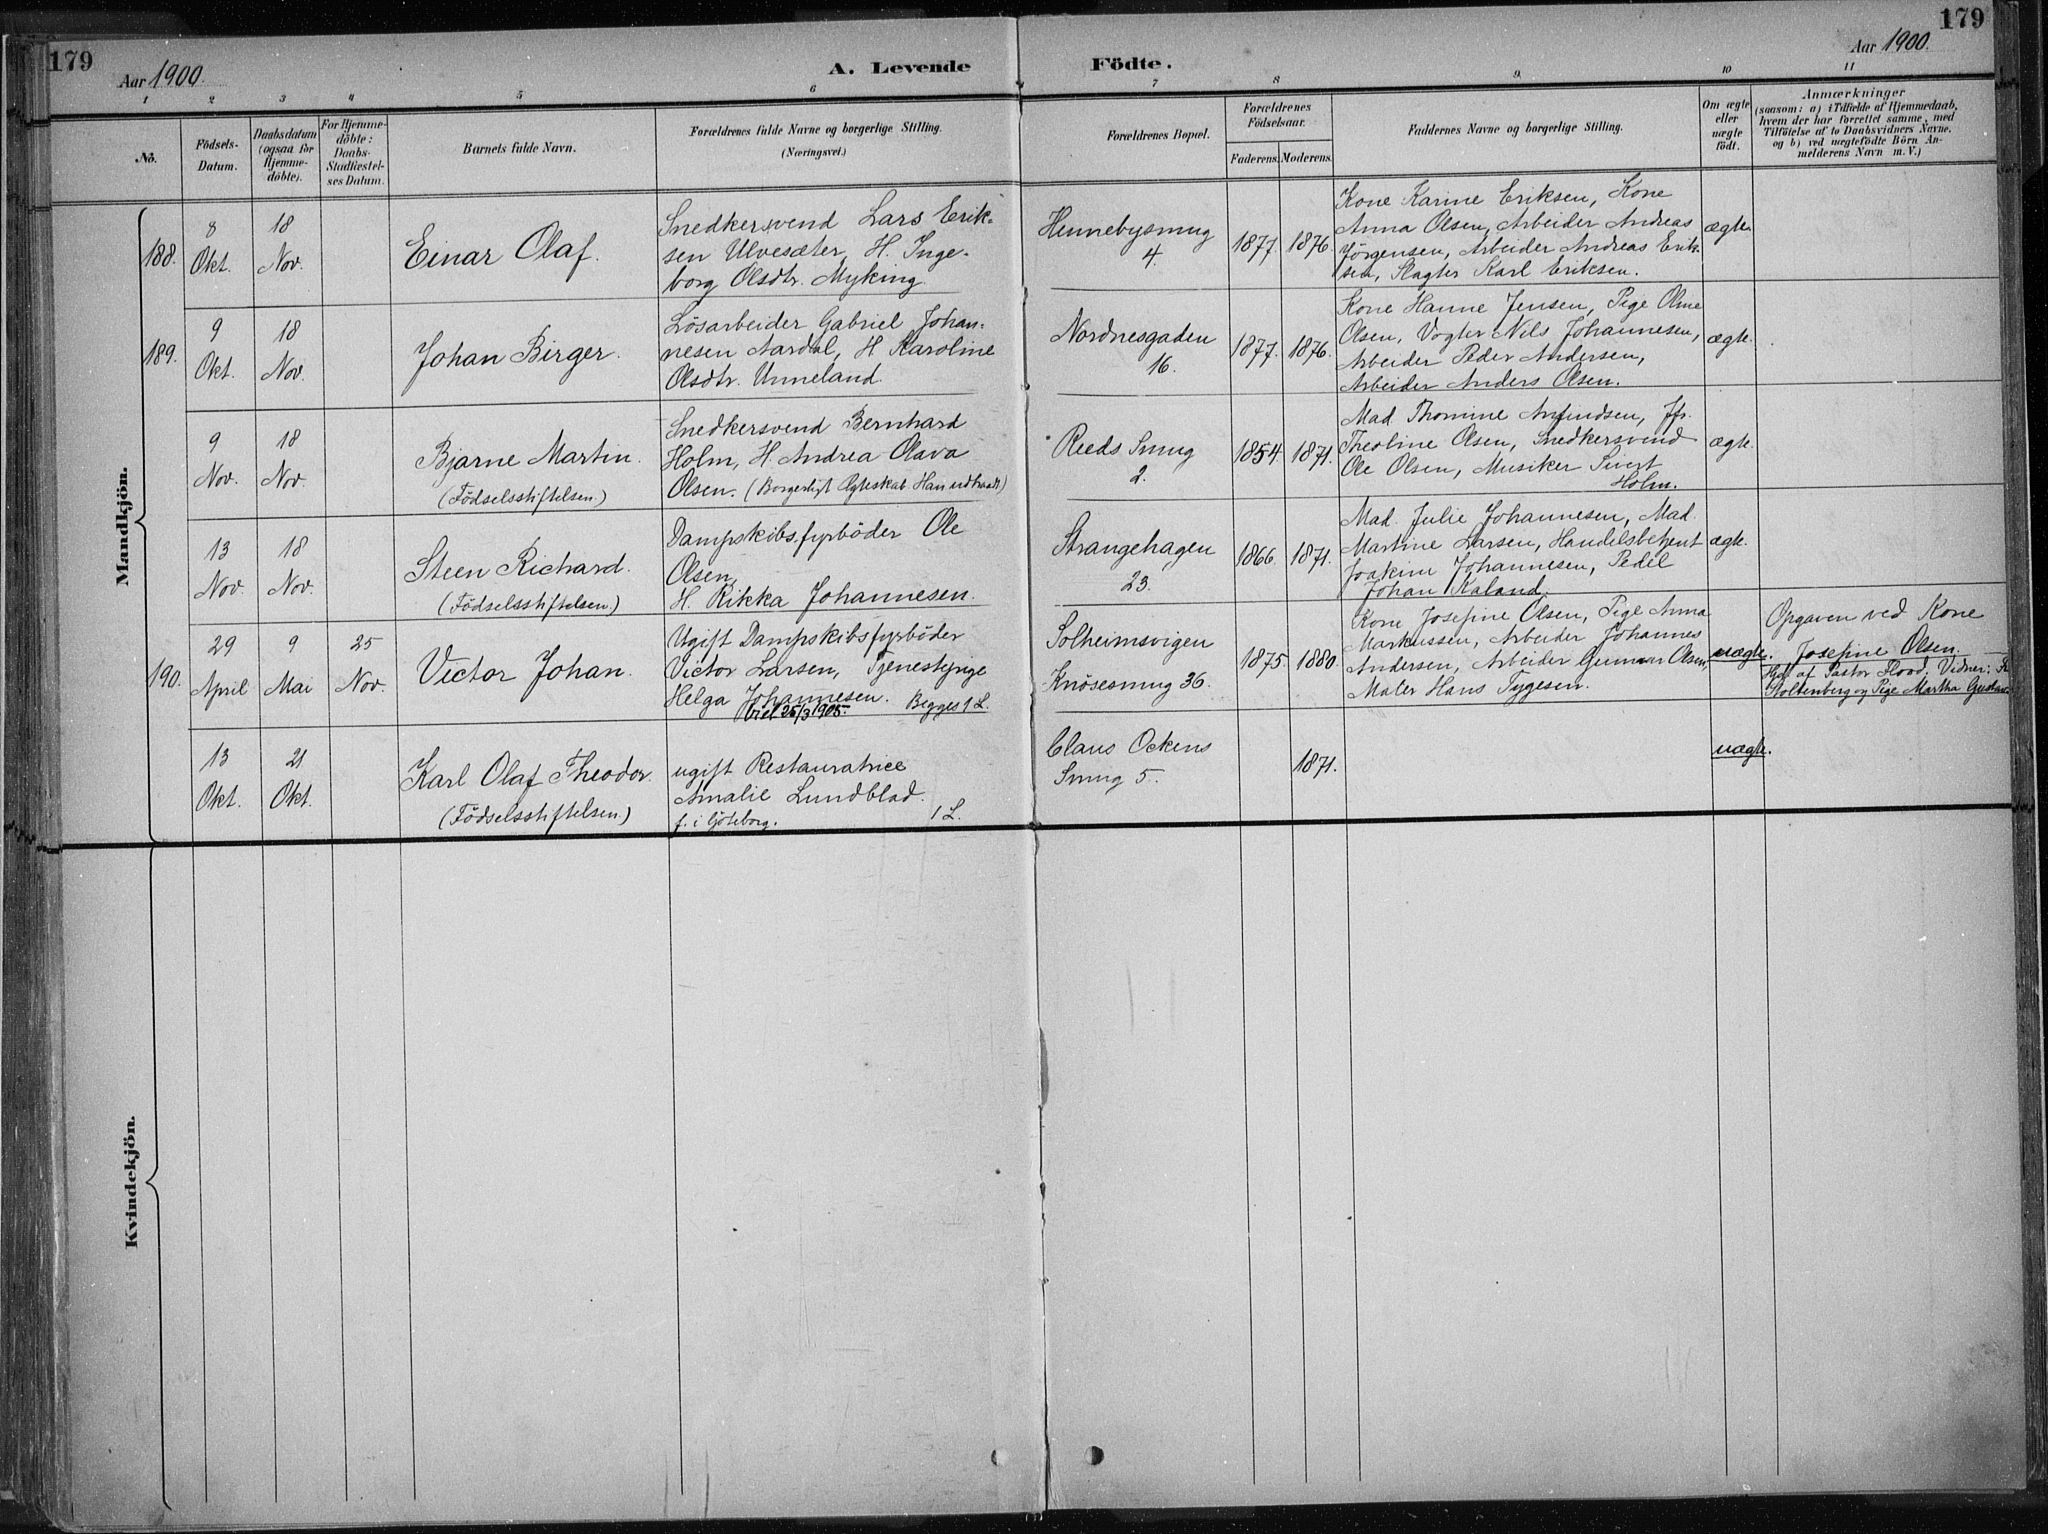 179
Aar 1900.
A. Levende Födte.
Aar 1900.
179
1 2 3 4 5 6 7 8 9. 10 11
No.
Födsels-
Datum.
Daabsdatum
(ogsaa for
Hjemme-
döbte).
For Hjemme-
döbte:
Daabs-
Stadfæstel-
ses Datum.
Barnets fulde Navn.
Forældrenes fulde Navne og borgerlige Stilling.
(Næringsvei.)
Forældrenes Bopæl.
Forældrenes
Födselsaar.
Faderens. Moderens.
Faddernes Navne og borgerlige Stilling.
Om ægte
eller
uægte
födt.
Anmærkninger
(saasom: a) i Tilfælde af Hjemmedaab,
hvem der har forrettet samme, med
Tilföielse af to Daabsvidners Navne.
og b) ved uægtefödte Börn An-
melderens Navn m. V.)
Mandkjön.
188.
8
Okt.
18
Nov.
Einar Olaf.
Snedkersvend Lars Erik-
sen Ulvesæter, H. Inge-
borg Olsdtr. Myking.
Hennebysmug
4.
1877. 1876.
Kone Karine Eriksen, Kone
Anna Olsen, Arbeider Andreas
Jörgensen, Arbeider Andreas Erik-
sen, Slagter Karl Eriksen.
ægte.
189.
9
Okt.
18
Nov.
Johan Birger.
Lösarbeider Gabriel Johan-
nesen Aardal, H. Karoline
Olsdtr. Unneland.
Nordnesgaden
16.
1877. 1876.
Kone Hanne Jensen, Pige Oline
Olsen, Vogter Nils Johannesen,
Arbeider Peder Andersen,
Arbeider Anders Olsen.
ægte.
9
Nov.
18
Nov.
Bjarne Martin.
(Födselsstiftelsen.)
Snedkersvend Bernhard
Holm, H. Andrea Olava
Olsen. (Borgerligt Ægteskab Han udtraadt)
Reeds Smug
2.
1854. 1871.
Mad. Thomine Amundsen, Jfr.
Theoline Olsen, Snedkersvend
Ole Olsen, Musiker Sivert
Holm.
ægte.
13
Nov.
18
Nov.
Steen Richard.
(Födselsstiftelsen.)
Dampskibsfyrböder Ole
Olsen,
H. Rikka Johannesen.
Strangehagen
23.
1866. 1871.
Mad. Julie Johannesen, Mad.
Martine Larsen, Handelsbetjent
Joakim Johannesen, Pedel
Johan Kaland.
ægte.
190.
29
April
9
Mai
25
Nov.
Victor Johan.
Ugift Dampskibsfyrböder
Victor Larsen, Tjenestepige
Helga Johannesen. Begges 1 L.
Viet 25/3 1905.
Solheimsvigen
Knösesmug 36.
1875. 1880.
Kone Josefine Olsen, Pige Anna
Markussen, Arbeider Johannes
Andersen, Arbeider Gunnar Olsen,
Maler Hans Tygesen.
uægte.
Opgaven ved Kone
Josefine Olsen.
Hjd. af Pastor Flood. Vidner: K.
Stoltenberg og Pige Martha Gustav
13
Okt.
21
Okt.
Karl Olaf Theodor.
(Födselsstiftelsen.)
ugift Restauratrice
Amalie Lundblad.
f. i Göteborg. 1 L.
Claus Ockens
Smug 5.
1871.
uægte.
Kvindekjön.